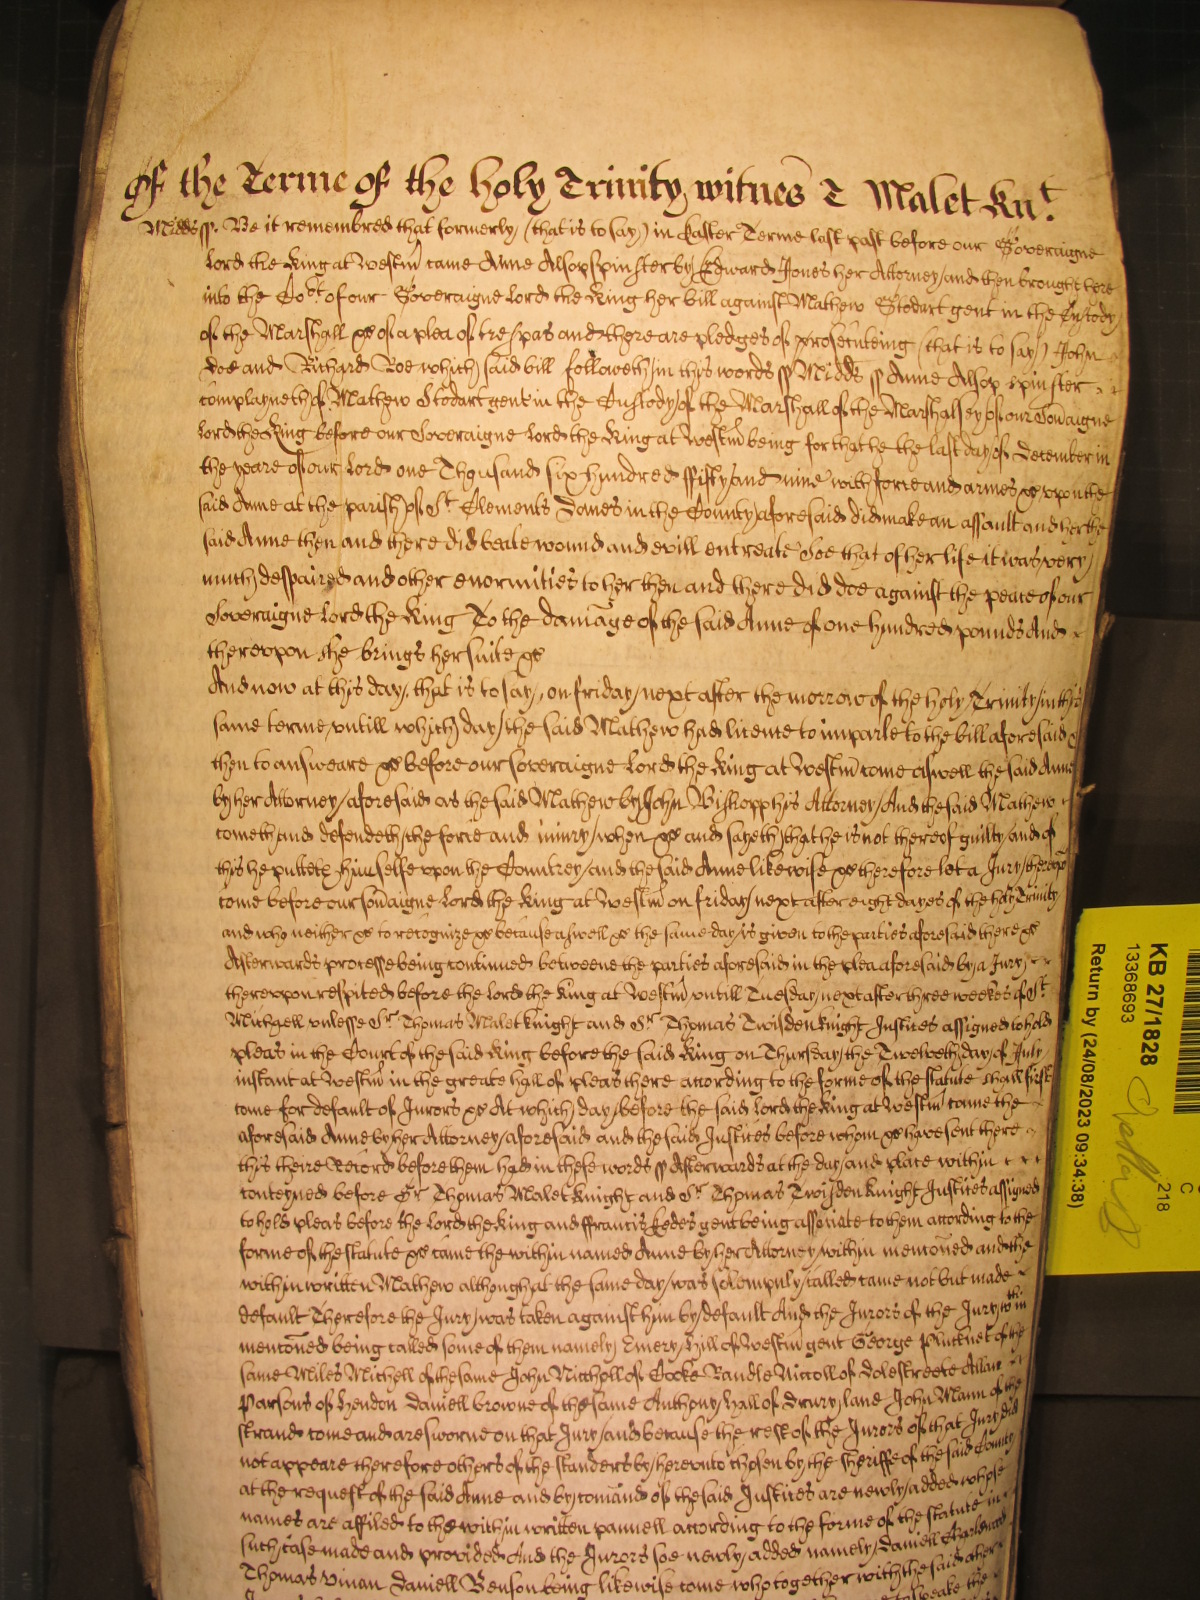 Of the Terme of the holy Trinity witnes T Malet Knt.
Midds ss. Be it remembred that formerly (that is to say) in Easter Terme last past before our Soveraigne
Lord the King at Westm came Anne Alsop spinster by Edward Jones her Attorney and then brought here
into the Cort of our Soveraigne Lord the King her bill against Mathew Stodart gent in the Custody
of the Marshall &c of a plea of trespas and there are pledges of prosecuteing (that is to say) John
Doe and Richard Roe which said bill followeth in this words ss Midds ss Anne Alsop spinster
complayneth of Mathew Stodart gent in the Custody of the Marshall of the Marshalsey of our Sovaigne
Lord the King before our Soveraigne Lord the King at Westm being for that he the last day of December in
the yeare of our Lord one Thousand six hundred ffifty and nine with force and armes &c vpon the
said Anne at the parish of St Clements Danes in the County aforesaid did make an assault and her the
said Anne then and there did beate wound and evill entreate Soe that of her life it was very
much despaired and other enormities to her then and there did doe against the peace of our
Soveraigne Lord the King To the damage of the said Anne of one hundred pounds And
therevpon she brings her suite &c
And now at this day, that is to say, on friday next after the morrow of the holy Trinity in this
same terme vntill which day the said Mathew had licence to imparle to the bill aforesaid &
then to answeare &c before our soveraigne Lord the King at Westm come aswell the said Anne
by her Attorney aforesaid as the said Mathew by John Bishopp his Attorney And the said Mathew
cometh and defendeth the force and iniury when &c and sayeth that he is not thereof guilty and of
this he putteth himselfe vpon the Countrey and the said Anne likewise &c therefore let a Jury therevpon
come before our sovaigne Lord the King at Westm on friday next after eight dayes of the holy Trinity
and who neither &c to recognize &c because aswell &c the same day is given to the parties aforesaid there &c
Afterwards processe being continued betweene the parties aforesaid in the plea aforesaid by a Jury
therevpon respited before the Lord the King at Westm vntill Tuesday next after three weekes of St
Michaell vnlesse Sr Thomas Malet knight and Sr Thomas Twisden knight Justices assigned to hold
pleas in the Court of the said King before the said King on Thursday the Twelveth day of July
instant at Westm in the greate hall of pleas there according to the forme of the statute shall first
come for default of Jurors &c At which day before the said Lord the King at Westm came the
aforesaid Anne by her Attorney aforesaid and the said Justices before whom &c have sent there
this theire Record before them had in these words ss Afterwards at the day and place within
conteyned before Sr Thomas Malet Knight and Sr Thomas Twisden Knight Justices assigned
to hold pleas before the Lord the King and ffrancis Eedes gent being associate to them according to the
forme of the statute &c came the within named Anne by her Attorney within menconed and the
within written Mathew although at the same day was solempnly called came not but made
default Therefore the Jury was taken against him by default And the Jurors of the Jury wthin
menconed being called some of them namely Emery Hill of Westm gent George Plucknet of the
same Miles Michell of the same John Nicholl of Cocke Randle Niccoll of Colestreete Allan
Parsons of Hendon Daniell browne of the same Anthony Hall of Drury lane John Mann of the
strand come and are sworne on that Jury and because the rest of the Jurors of that Jury did
not appeare therefore others of the standers by herevnto chosen by the Sheriffe of the said County
at the request of the said Anne and by comand of the said Justices are newly added whose
names are affiled to the within written pannell according to the forme of the statute in
such case made and provided And the Jurors soe newly added namely Daniell
Thomas Vinan Daniell Benson being likewise come who together with the said other
KB 27/1828
13368693
Return by (24/08/2023 09:34:38)
218
C